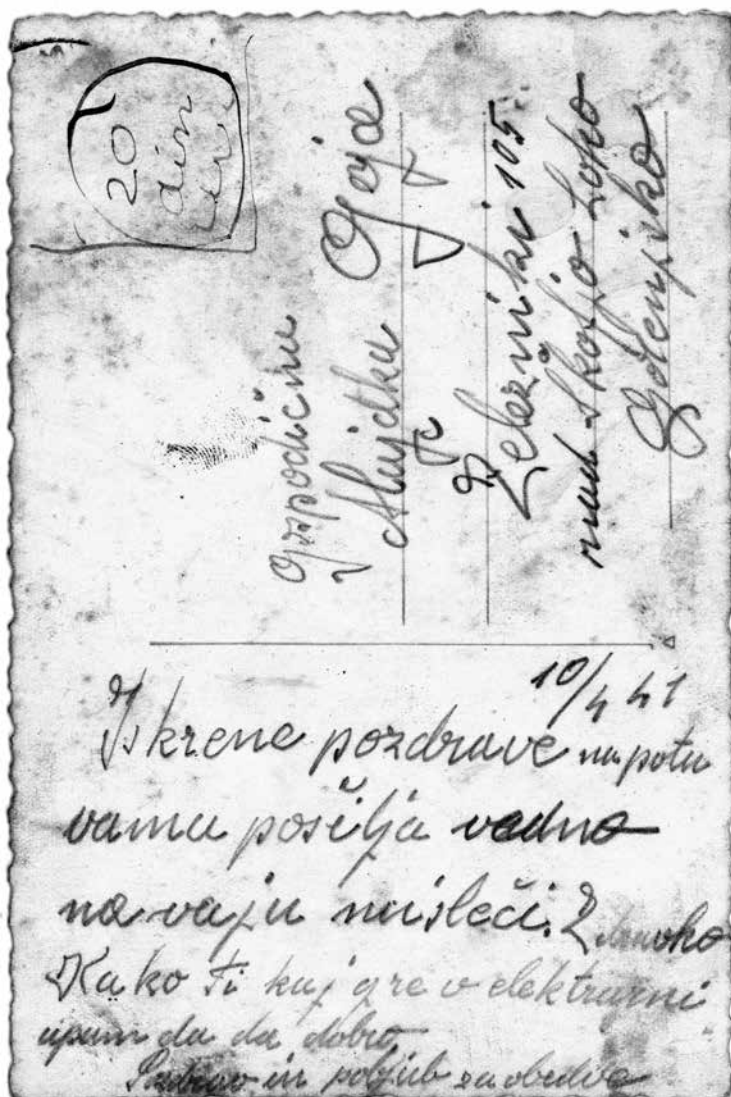 20
din
Gospodična
Majdka Gaja
Železniki 105.
nad Škofjo Loko
Gorenjsko
10/4 41
Iskrene pozdrave na potu
vama pošilja vedno
na vaju misleči. Zdravko
Kako ti kaj gre v elektrarni
upam da da dobro
Pozdrav in poljub za obedve